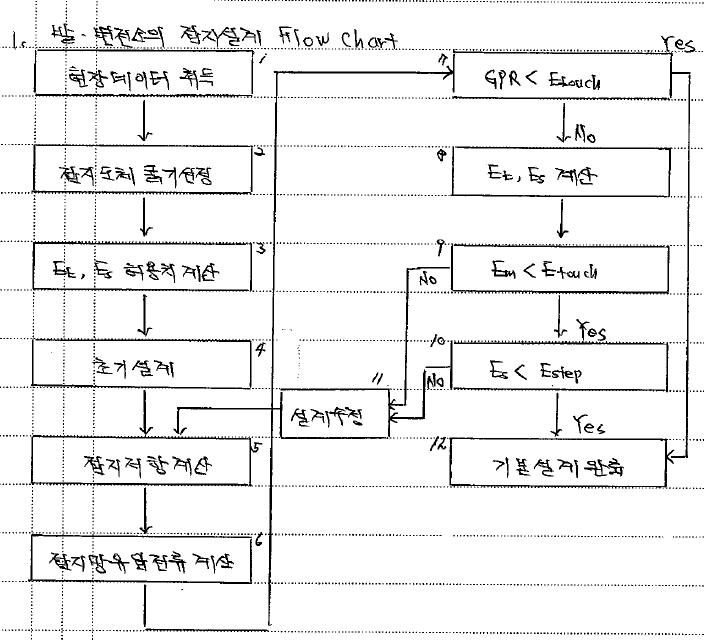 1. 발·변전소의 접지설계 Flow Chart
1
현장데이터 취득
2
접지도체 굵기선정
3
Et, Es 허용치 계산
4
초기설계
5
접지저항계산
6
접지망유입전류 계산
7
GPR < Etouch
Yes
No
8
Et, Es 계산
9
Em < Etouch
No
Yes
10
Es < Estep
No
Yes
11
설계수정
12
기본설계 완료